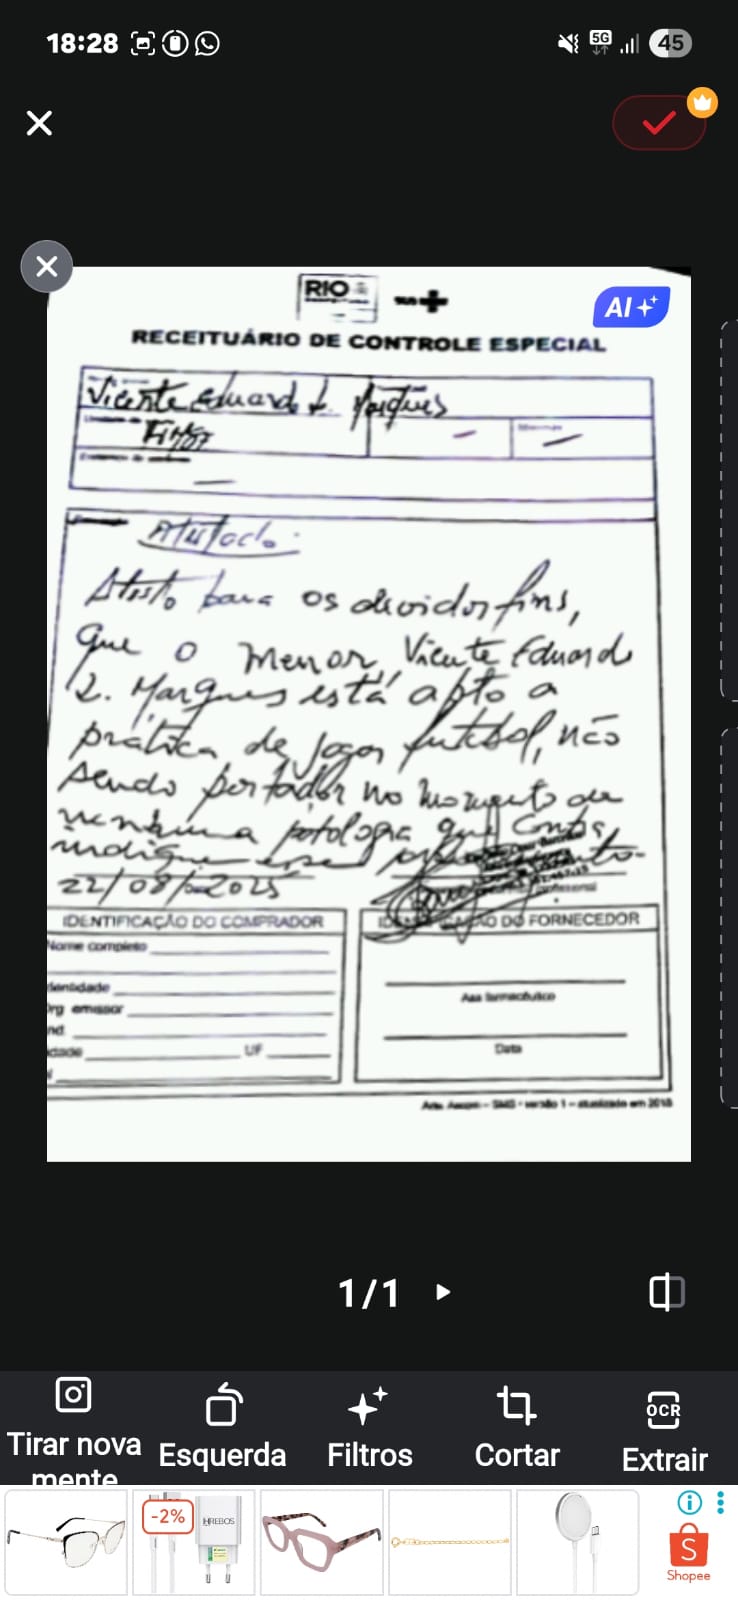 18:28
5G
45
RIO
AI
RECEITUÁRIO DE CONTROLE ESPECIAL
Vicente Eduardo L. Marques
Atestado:
Atesto para os devidos fins,
que o menor, Vicente Eduardo
L. Marques está apto a
prática de jogar futebol, não
sendo portador no momento de
nenhuma patologia que contra
indique esse
22/08/2025
IDENTIFICAÇÃO DO COMPRADOR
DO FORNECEDOR
Nome completo
dentidade
rg emissor
nd
idade
UF
Ass farmacêutico
Data
SMS - versão 1 - atualizado em 2018
1/1
Tirar nova
mente
Esquerda
Filtros
Cortar
OCR
Extrair
-2%
HREBOS
Shopee